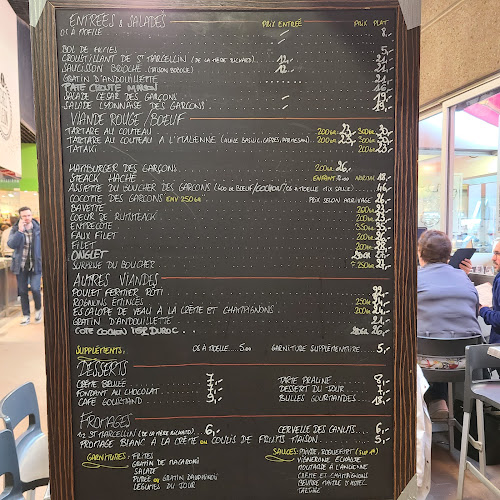 ENTRÉES & SALADES PRIX ENTRÉE PRIX PLAT
OS À MOELLE 8,-
BOL DE FRITES 5,-
CROUSTILLANT DE ST MARCELLIN (DE LA MÈRE RICHARD) 12,- 21,-
SAUCISSON BRIOCHÉ (MAISON BOBOSSE) 12,- 21,-
GRATIN D'ANDOUILLETTE 21,-
PÂTÉ CROÛTE MAISON 16,-
SALADE CÉSAR DES GARÇONS 19,-
SALADE LYONNAISE DES GARÇONS 19,-
VIANDE ROUGE / BOEUF
TARTARE AU COUTEAU 200GR 23,- 300GR 30,-
TARTARE AU COUTEAU À L'ITALIENNE (OLIVE, BASILIC, CÂPRES, PARMESAN) 200GR 23,- 300GR 30,-
TATAKI 200GR 23,-
HAMBURGER DES GARÇONS 200GR 26,-
STEACK HACHÉ ENFANT 12.00 NORMAL 18,-
ASSIETTE DU BOUCHER DES GARÇONS (400 DE BOEUF/COCHON/OS À MOELLE MIX SALLE) 46,-
COCOTTE DES GARÇONS ENV 250GR PRIX SELON ARRIVAGE 26,-
BAVETTE 200GR
COEUR DE RUMSTEACK 200GR
ENTRECÔTE 350GR
FAUX FILET 200GR
FILET 200GR
ONGLET
SURPRISE DU BOUCHER 250GR
AUTRES VIANDES
POULET FERMIER RÔTI 22,-
ROGNONS ÉMINCÉS 250GR
ESCALOPE DE VEAU À LA CRÈME ET CHAMPIGNONS 200GR
GRATIN D'ANDOUILLETTE 21,-
CÔTE COCHON DUROC 26,-
SUPPLÉMENTS: OS À MOELLE ... 5.00 GARNITURE SUPPLÉMENTAIRE ... 5,-
DESSERTS
CRÈME BRULÉE 7,- TARTE PRALINE 8,-
FONDANT AU CHOCOLAT DESSERT DU JOUR
CAFÉ GOURMAND BULLES GOURMANDES 13,-
FROMAGES
1/2 ST MARCELLIN (DE LA MÈRE RICHARD) 6,- CERVELLE DES CANUTS 6,-
FROMAGE BLANC À LA CRÈME OU COULIS DE FRUITS MAISON 5,-
GARNITURES: FRITES
GRATIN DE MACARONI
SALADE
PURÉE OU GRATIN DAUPHINOIS
LÉGUMES DU JOUR
SAUCES: POIVRE, ROQUEFORT (SUP 1€)
VIGNERONNE ÉCHALOTE
MOUTARDE À L'ANCIENNE
CRÈME ET CHAMPIGNONS
BEURRE MAÎTRE D'HÔTEL
TARTARE